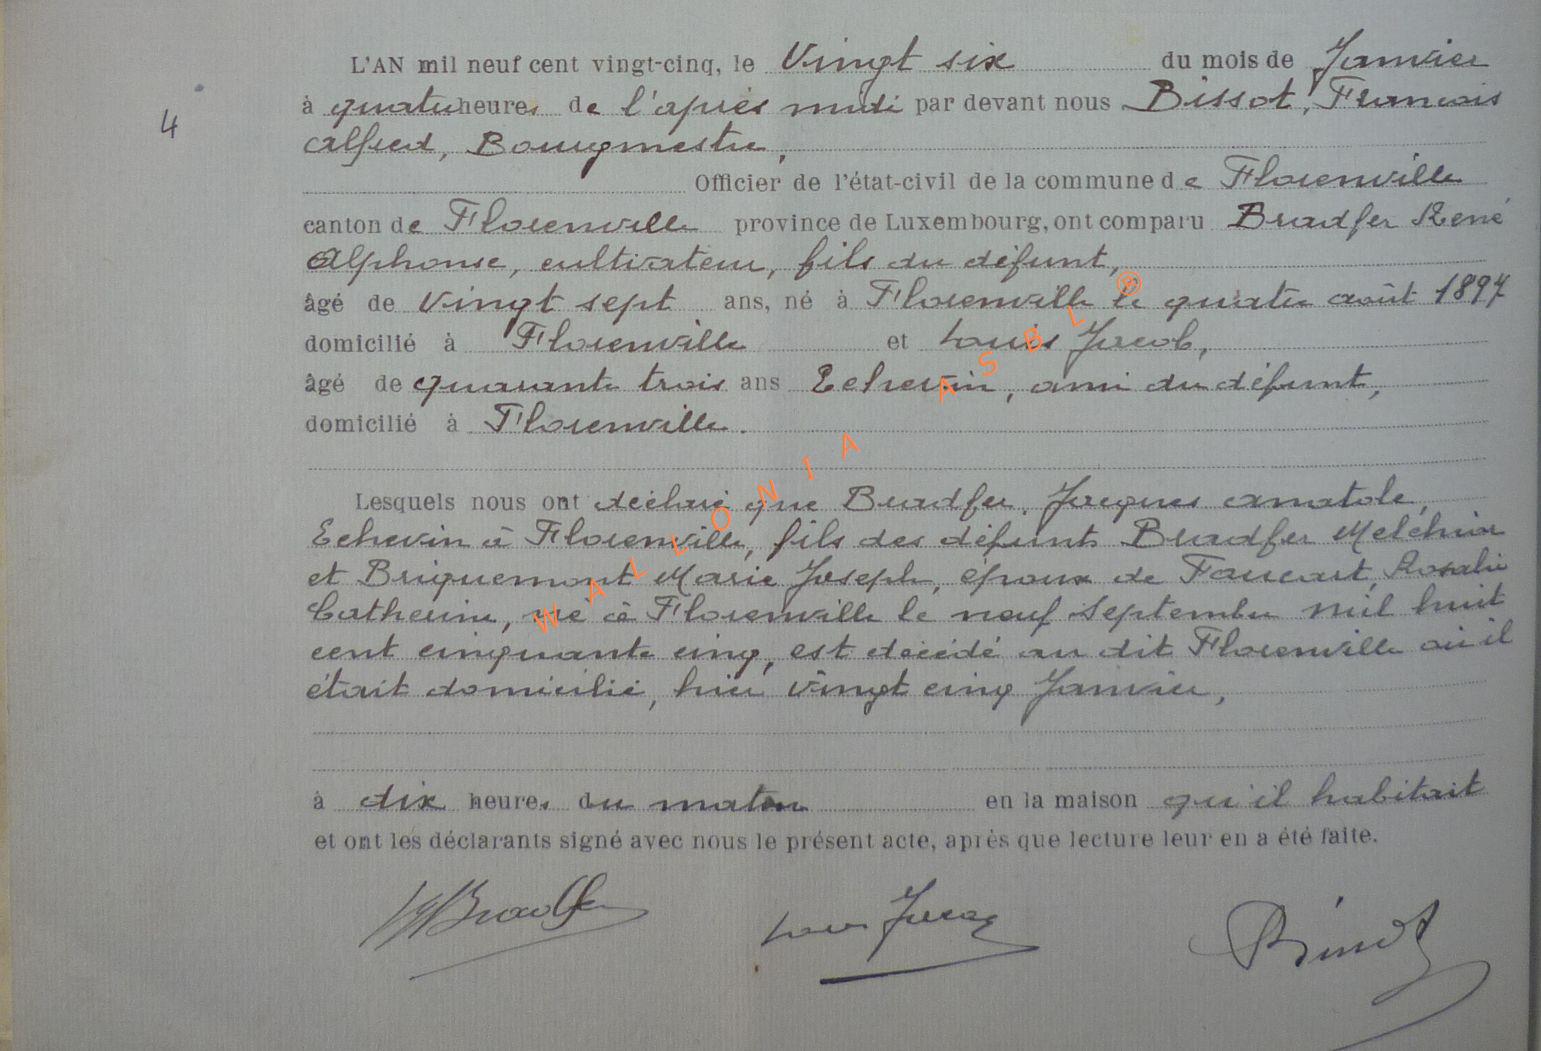 L'AN mil neuf cent vingt-cinq, le Vingt six du mois de Janvier
4
à quatre heures de l'après midi par devant nous Bissot, François
Alfred, Bourgmestre,
Officier de l'état-civil de la commune de Florenville
canton de Florenville province de Luxembourg, ont comparu Bradfer René
Alphonse, cultivateur, fils du défunt,
âgé de vingt sept ans, né à Florenville le quatre août 1897
domicilié à Florenville et Louis Jacob,
âgé de quarante trois ans Echevin, ami du défunt,
domicilié à Florenville.
Lesquels nous ont déclaré que Bradfer, Jacques anatole,
Echevin à Florenville, fils des défunts Bradfer Melchior
et Briquemont Marie Joseph, époux de Foucart, Rosalie
Catherine, né à Florenville le neuf Septembre mil huit
cent cinquante cinq, est décédé au dit Florenville où il
était domicilié, hier vingt cinq Janvier,
à dix heures du matin en la maison qu'il habitait
et ont les déclarants signé avec nous le présent acte, après que lecture leur en a été faite.
Bradfer Louis Jacob Bissot
WALLONIA ASBL ®